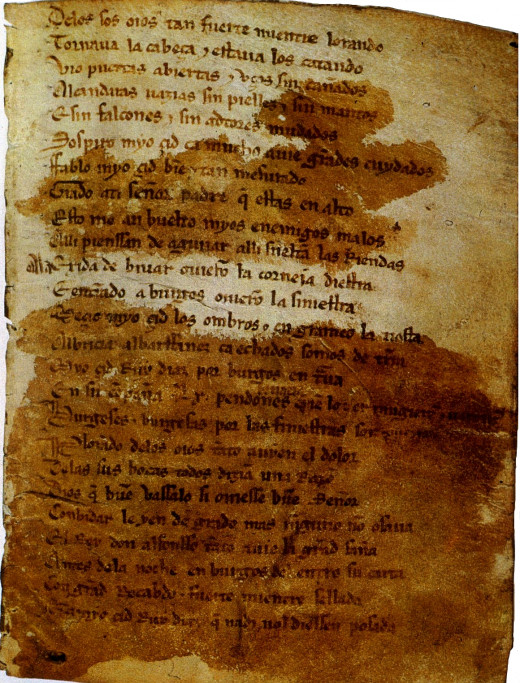 Delos sos oios tan fuerte mientre lorando
Tornava la cabeça ⁊ estava los catando
Vio puertas abiertas ⁊ vços sin cañados
Alcandaras vazias sin pielles ⁊ sin mantos
E sin falcones ⁊ sin adtores mudados
Sospiro myo çid ca mucho avie grãdes cuydados
Ffablo myo çid biẽ ⁊ tan mesurado
Grado ati señor padre q̃ estas en alto
Esto me an buelto myos enemigos malos
Alli pienssan de aguiiar alli sueltã las Riendas
Ala exida de bivar ovierõ la corneja diestra
E entrãdo a burgos ovierõ la siniestra
Meçio myo çid los ombros ⁊ en grameo la tiesta
Albricia albarffanez ca echados somos de tr̃ra
Myo çid Ruy diaz por burgos en trava
En su cõpaña .Lx. pendones
Burgeses ⁊ burgesas por las finiestras
Plorãdo delos oios tãto avyen el dolor
Delas sus bocas todos dizian una Razõ
Dios q̃ buẽ vassalo si oviesse buẽ Señor
Conbidar le yen de grado mas ninguno no osava
El Rey don alfonsso tãto avie la grãd saña
Antes dela noche en burgos del entro su carta
Con grãd Recabdo ⁊ fuerte mientre sellada
Que a myo çid Ruy diaz q̃ nadi nol diessen posada